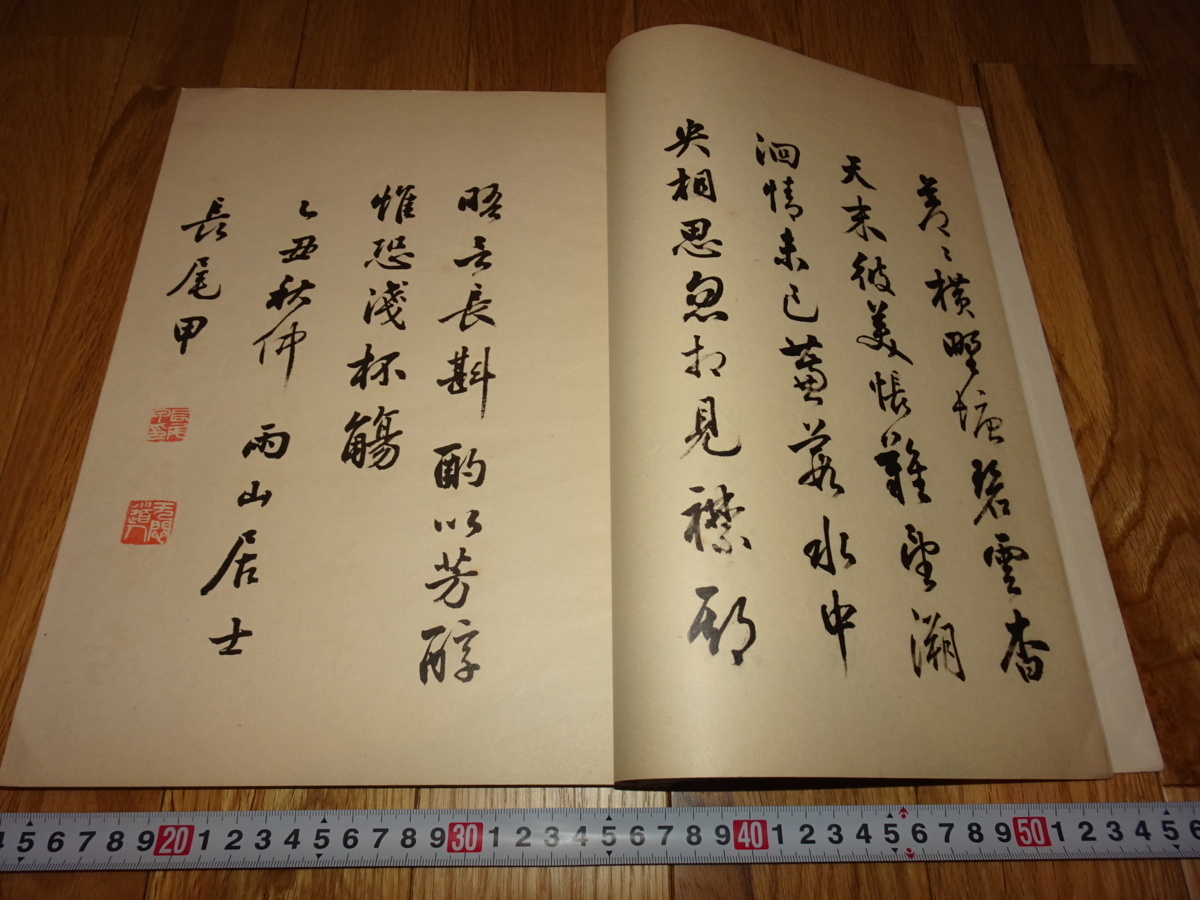 蒼〻橫野塘碧雲杳
天末彼美悵難望溯
洄情未已蒹葭水中
央相思忽相見襟期
晤言長斟酌以芳醇
惟恐淺杯觴
乙丑秋仲 雨山居士
長尾甲
4 5 6 7 8 9 20 1 2 3 4 5 6 7 8 9 30 1 2 3 4 5 6 7 8 9 40 1 2 3 4 5 6 7 8 9 50 1 2 3 4 5 6